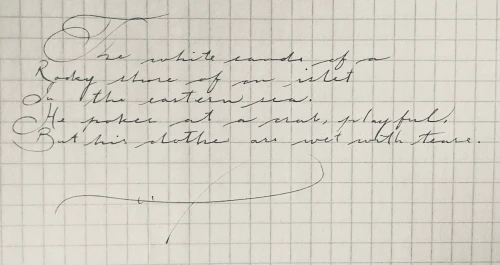 The white sands of a
Rocky shore of an islet
On the eastern sea.
He pokes at a crab, playful,
But his clothes are wet with tears.